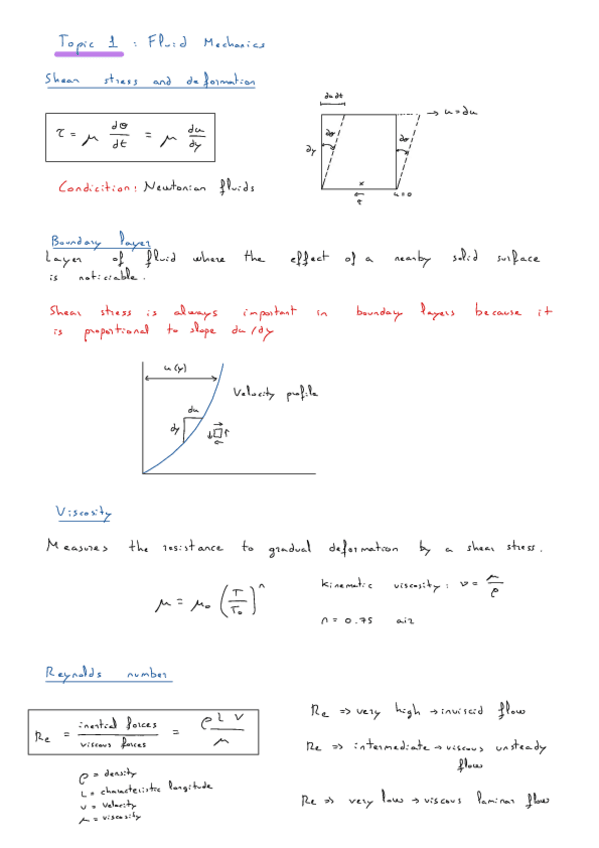 Topic 1 : Fluid Mechanics
Shear stress and deformation
τ = μ dθ/dt = μ du/dy
du dt
→ u = du
dy
dθ
dθ
τ
u=0
Condicition: Newtonian fluids
Boundary layer
Layer of fluid where the effect of a nearby solid surface
is noticiable.
Shear stress is always important in boundary layers because it
is proportional to slope du/dy
u(y)
Velocity profile
du
dy
Viscosity
Measures the resistance to gradual deformation by a shear stress.
μ = μ₀ (T/T₀)ⁿ
kinematic viscosity: ν = μ/ρ
n = 0.75 air
Reynolds number
Re = inertial forces/viscous forces = ρ L V/μ
ρ = density
L = characteristic longitude
v = velocity
μ = viscosity
Re => very high → inviscid flow
Re => intermediate → viscous unsteady
flow
Re => very low → viscous laminar flow